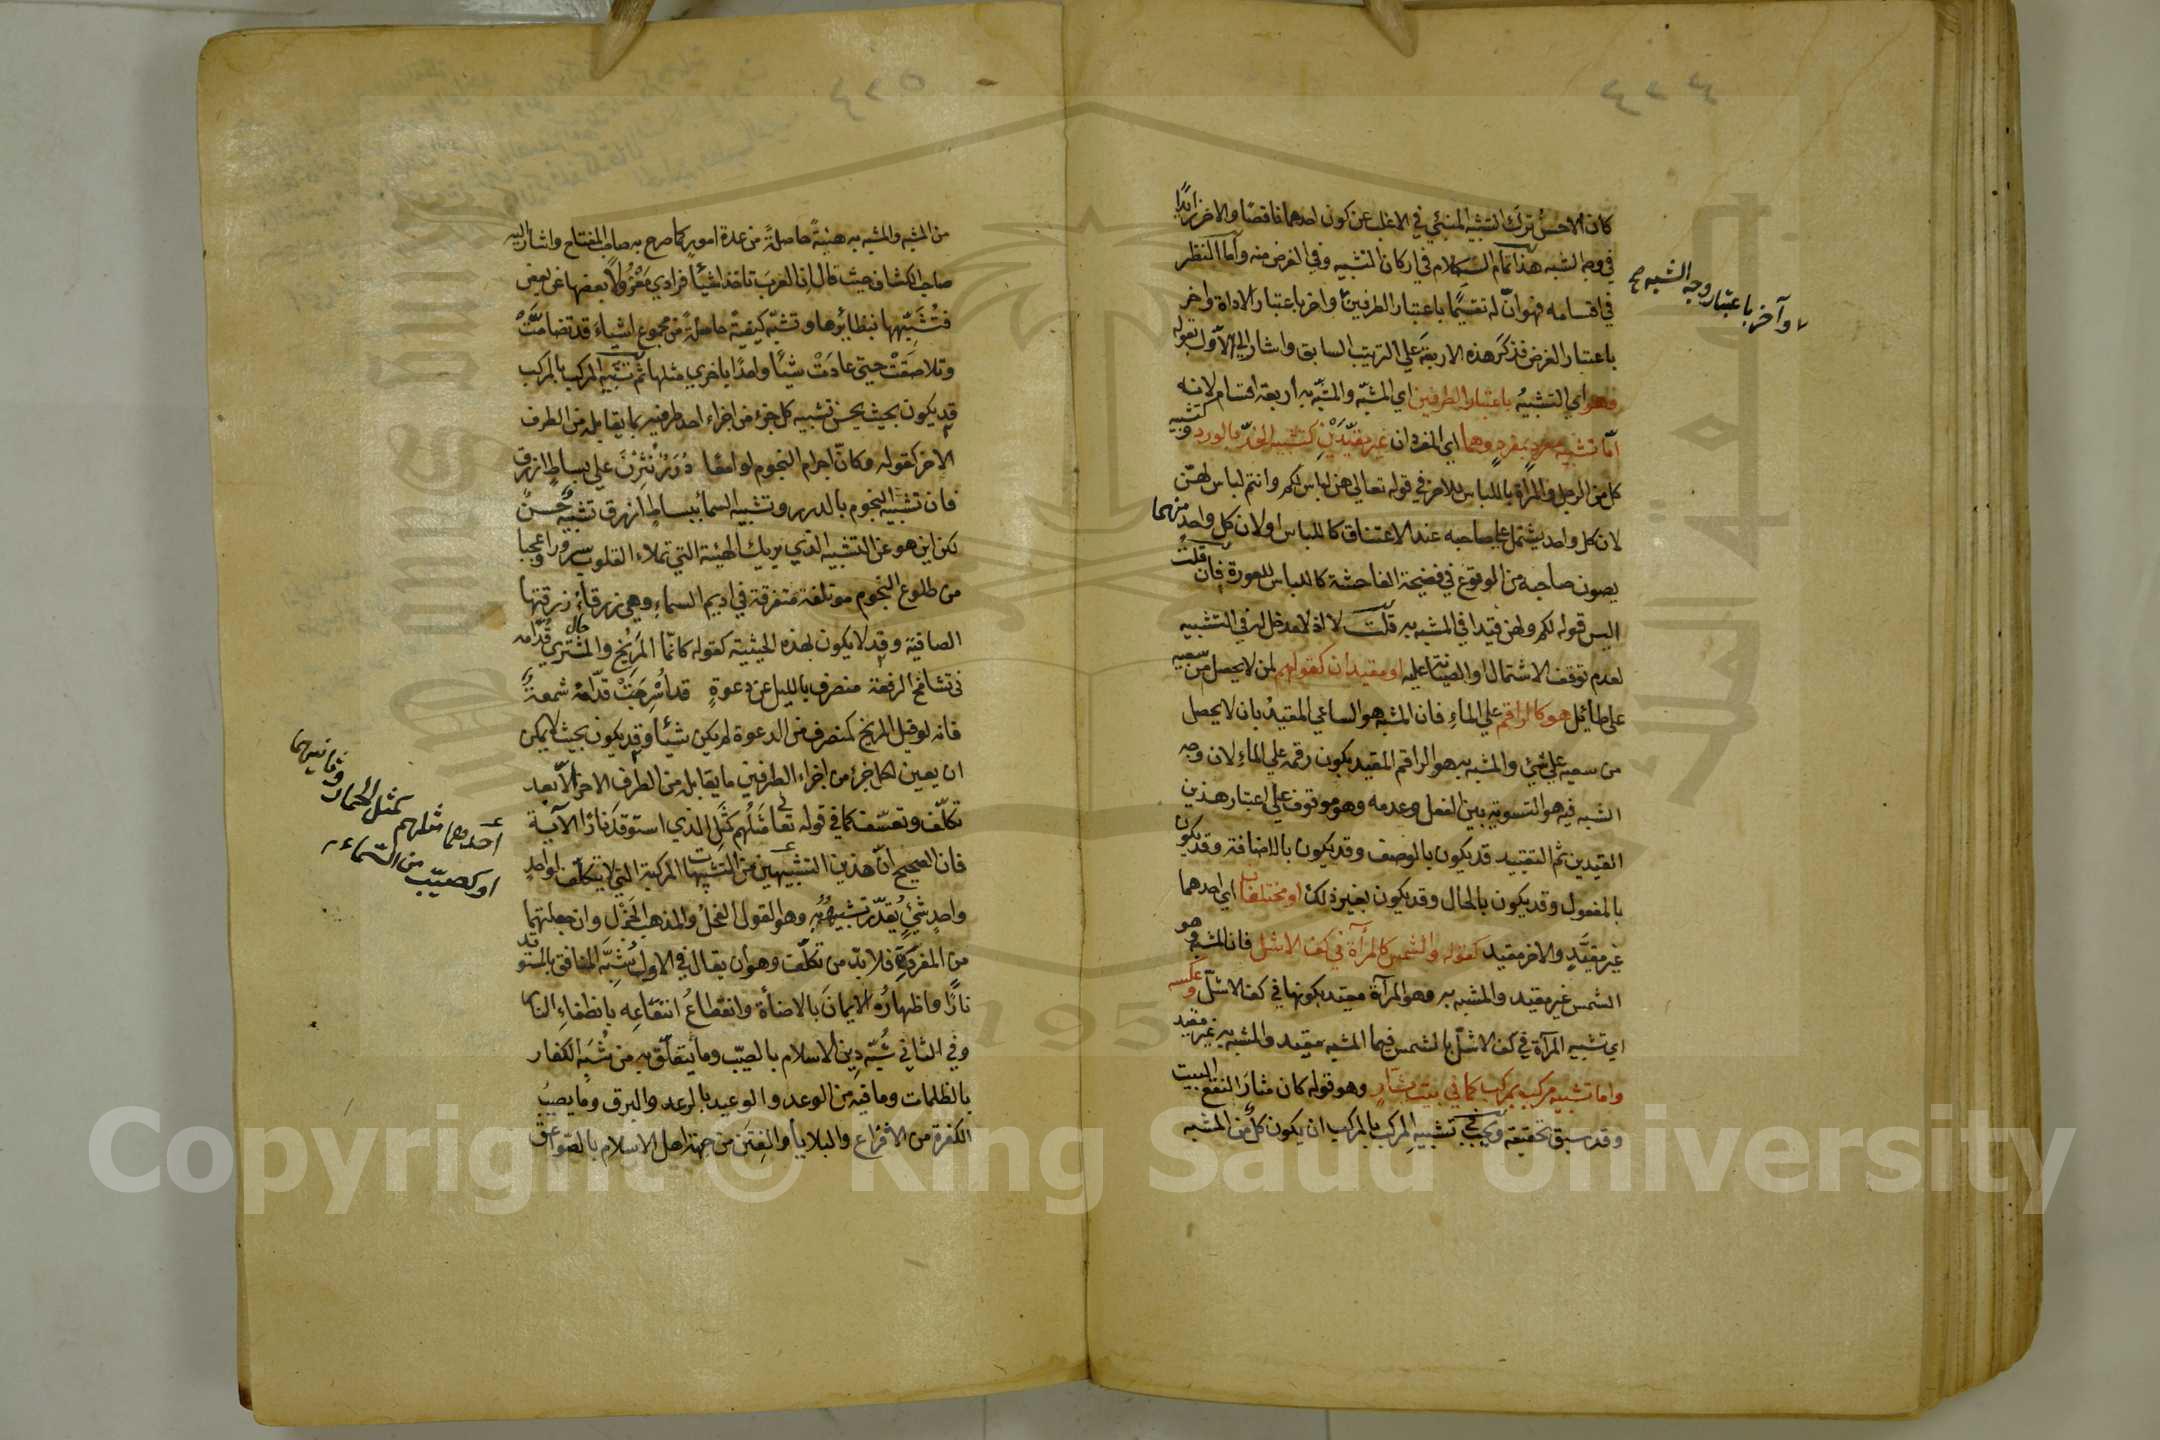 كان الاحسن ترك التشبيه المنبئ في الاغلب عن كون احدهما ناقصا والاخر زايدًا
في وجه الشبه هذا تمام الكلام في اركان التشبيه وفي الغرض منه وأما النظر
في اقسامه فهو انّ له تقسيمًا باعتبار الطرفين واخر باعتبار الاداة واخر
وآخر باعتبار وجه الشبه صح
باعتبار الغرض فذكر هذه الاربعة على الترتيب السابق واشار الى الاوّل بقوله
فهو اي التشبيه باعتبار الطرفين اي المشبّه والمشبّه به أربعة اقسام لانه
امّا تشبيه مفرد بمفردٍ وهما اي المفردان غير مقيّدَيْنِ كتشبيه الخدّ بالورد وكتشبيه
كل من الرجل والمرأة باللباس للآخر في قوله تعالى هن لباس لكم وانتم لباس لهنّ
لان كل واحد يشتمل على صاحبه عند الاعتناق كاللباس او لان كل واحد منهما
يصون صاحبه من الوقوع في فضيحة الفاحشة كاللباس للعورة فان قلت
اليس قوله لكم ولهن قيدا في المشبه به قلت لا اذ لا مدخل له في التشبيه
لعدم توقف الاشتمال او الصيانة عليه او مقيدان كقولهم لمن لا يحصل من سعيه
على طائل هو كالراقم على الماء فان المشبه هو الساعي المقيد بان لا يحصل
من سعيه على شئ والمشبه به هو الراقم المقيد بكون رقمه على الماء لان وجه
الشبه فيه هو التسوية بين الفعل وعدمه وهو موقوف على اعتبار هذين
القيدين ثم التقييد قد يكون بالوصف وقد يكون بالاضافة وقد يكون
بالمفعول وقد يكون بالحال وقد يكون بغير ذلك او مختلفان اي احدهما
غير مقيّدٍ والاخر مقيد كقوله والشمس كالمرآة في كف الاشل فان المشبه وهو
الشمس غير مقيد والمشبه به وهو المرآة مقيد بكونها في كف الاشلّ وعكسه
اي تشبيه المرآة في كف الاشلّ بالشمس فيها المشبه مقيد والمشبه به غير مقيد
واما تشبيه مركب بمركب كما في بيت بشّارٍ وهو قوله كان مثار النقع البيت
وقد سبق تحقيقه ويجب في تشبيه المركب بالمركب ان يكون كلٌّ من المشبه
من المشبه والمشبه به هيئةً حاصلةً من عدة امورٍ كما صرح به صاحب المفتاح واشار اليه
صاحب الكشاف حيث قال انّ العرب تاخذ اشيئا فرادي مَعْزُولًا بعضها عن بعض
فتُشَبِّهُها بنظائرها وتشبّه كيفيةً حاصلةً من مجموع اشياءَ قد تضامَّتْ
وتلاصَقَتْ حتى عادَتْ شيئًا واحدًا باخري مثلها ثم تشبيه المركب بالمركب
قد يكون بحيث يحسن تشبيه كل جزء من اجزاء احد طرفيه بما يقابله من الطرف
الاخر كقوله وكانّ اجرام النجوم لوامعًا دُرَرٌ نُثِرْنَ على بساطٍ ازرق
فان تشبيه النجوم بالدرر وتشبيه السما ببساطٍ ازرق تشبيه حَسنٌ
لكن اين هو عن التشبيه الذي يريك الهيئة التي تملاء القلوب سرورا وعجبا
من طلوع النجوم مؤتلفة متفرقة في اديم السماء وهي زرقاء زرقتها
الصافية وقد لا يكون بهذه الحيثية كقوله كانّما المَرِّيخُ والمشتري قُدّامه
في شامخ الرفعة منصرف بالليل عن دعوةٍ قد اُسْرِجَتْ قدّامه شمعةٌ
فانه لو قيل المريخ كمنصرف من الدعوة لم يكن شيئًا وقد يكون بحيث لا يمكن
ان يعين لكل جزء من اجزاء الطرفين ما يقابله من الطرف الاخر الّا بعد
تكلّف وتعسّف كما في قوله تعالى مَثَلُهم كَمَثَلِ الذي استوقد نارًا الآية
فان الصحيح انّ هذين التشبيهين من التشبيهات المركبة التي لا يتكلّف لواحدٍ
احدهما مثلهم كمثل الحمار وثانيهما
او كصيّب من السّماء
واحدٍ شئٍ يُقَدّر تشبيهُه به وهو القول الفَحْلُ والمذهب الجَزْل وان جعلتهما
من المفرقة فلا بدّ من تكلّف وهو أن يقال في الاول شُبِّهَ المنافق بالمستوقد
نارًا واظهارُه الايمانَ بالاضأة وانقطاعُ انتفاعِه بانطفاءِ النار
وفي الثاني شُبّه دِين الاسلام بالصيّب وما يتعلّق به من شُبَهِ الكفار
بالظلمات وما فيه من الوعد والوعيد بالرعد والبرق وما يصيبُ
الكفرة من الافزاع والبلايا والفِتَن من جهة اهل الاسلام بالصواعق
Copyright © King Saud University